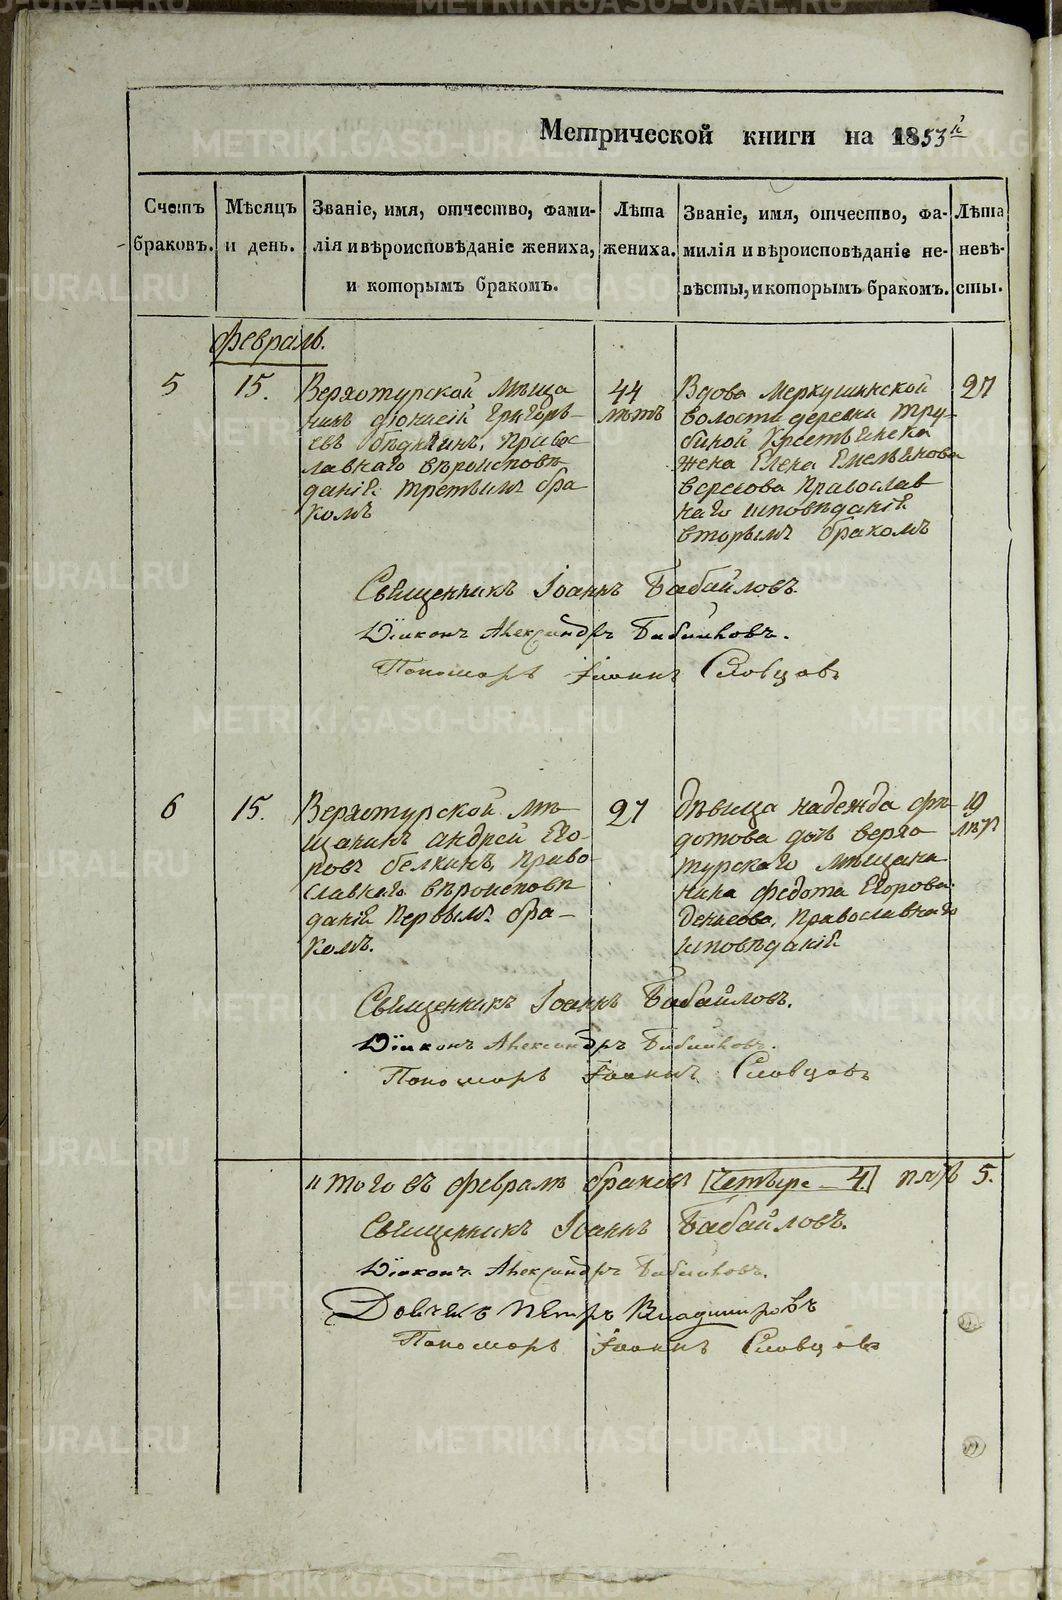 Метрической книги на 1853й
Счетъ браковъ.
Мѣсяцъ и день.
Званіе, имя, отчество, фами-
лія и вѣроисповѣданіе жениха,
и которымъ бракомъ.
Лѣта
жениха.
Званіе, имя, отчество, фа-
милія и вѣроисповѣданіе не-
вѣсты, и которымъ бракомъ.
Лѣта
невѣ-
сты.
Февраль.
5
15.
Верхотурской мѣща
нинъ Діонисій Григорь-
евъ Бѣдкинъ, Правос-
лавнаго вѣроисповѣ
даній третьимъ бра
комъ
44
лѣтъ
Вдова Меркушинской
волости деревни Тру-
биной Крестьянска
жена Елена Емельянова
православ
наго исповѣданій
вторымъ бракомъ
27
Священникъ Іоаннъ Бабайловъ.
Діаконъ Александръ Бабайловъ.
Пономарь Іоаннъ Словцовъ
6
15.
Верхотурской мѣ-
щанинъ Андрей Его-
ровъ Белкинъ, Право-
славнаго вѣроисповѣ
даній первымъ бра-
комъ.
27
Дѣвица Надежда Фе-
дотова дочь Верхо
турскаго мѣщани
нина Федота Егорова
Денисова, Православнаго
исповѣданій
19
лѣтъ
Священникъ Іоаннъ Бабайловъ.
Діаконъ Александръ Бабайловъ.
Пономарь Іоаннъ Словцовъ
итого въ февралѣ браковъ четыре - 4. пять 5.
Священникъ Іоаннъ Бабайловъ.
Діаконъ Александръ Бабайловъ.
Дьячекъ Петръ Владимировъ
Пономарь Іоаннъ Словцовъ
METRIKI.GASO-URAL.RU